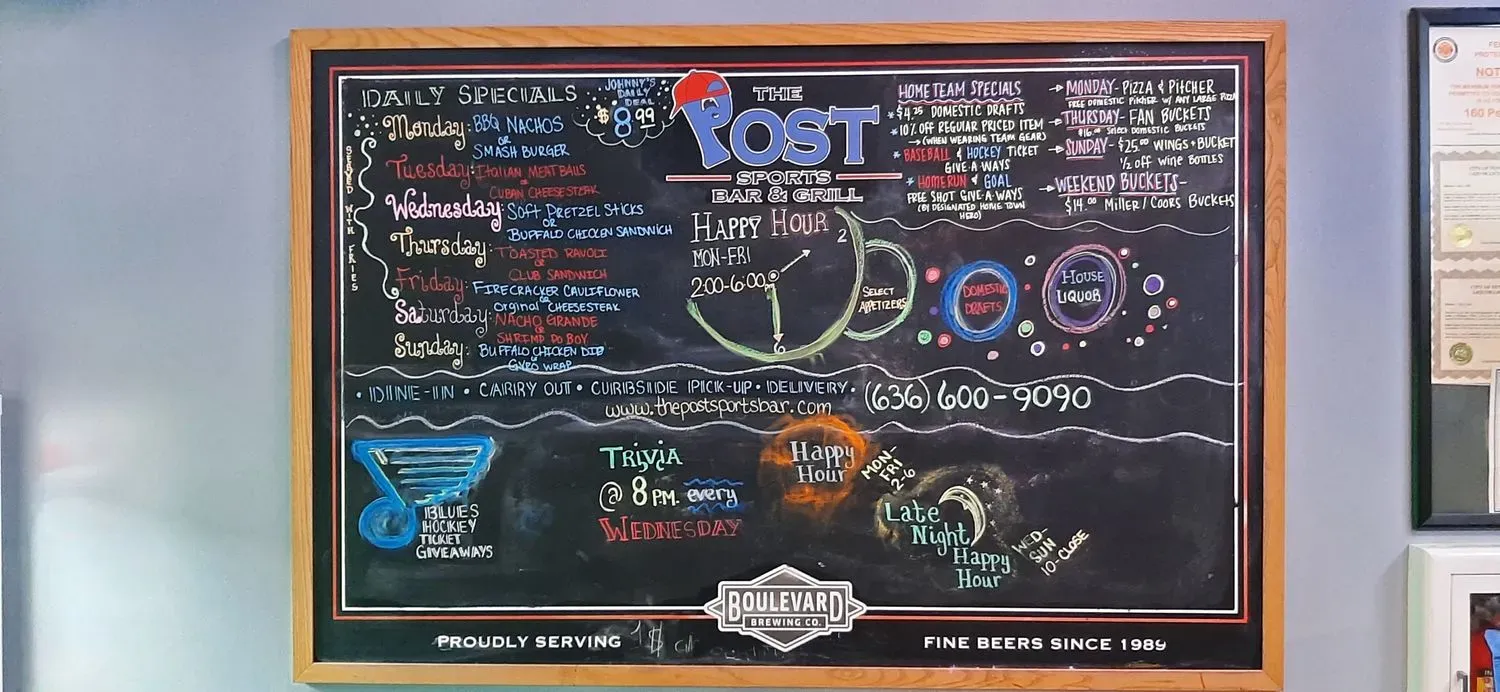 DAILY SPECIALS
JOHNNY'S
DAILY
DEAL
$8.99
SERVED WITH FRIES
Monday: BBQ NACHOS
OR
SMASH BURGER
Tuesday: ITALIAN MEATBALLS
or
CUBAN CHEESESTEAK
Wednesday: SOFT PRETZEL STICKS
OR
BUFFALO CHICKEN SANDWICH
Thursday: TOASTED RAVOLI
OR
CLUB SANDWICH
Friday: FIRECRACKER CAULIFLOWER
OR
Orginal CHEESESTEAK
Saturday: NACHO GRANDE
OR
SHRIMP PO BOY
Sunday: BUFFALO CHICKEN DIP
or
GYRO WRAP
THE
POST
SPORTS
BAR & GRILL
HAPPY HOUR
MON-FRI
2:00-6:00pm
2
6
SELECT
APPETIZERS
DOMESTIC
DRAFTS
HOUSE
LIQUOR
HOME TEAM SPECIALS
* $4.25 DOMESTIC DRAFTS
* 10% OFF REGULAR PRICED ITEM
(WHEN WEARING TEAM GEAR)
* BASEBALL & HOCKEY TICKET
GIVE-A-WAYS
* HOMERUN & GOAL
FREE SHOT GIVE-A-WAYS
(BY DESIGNATED HOME TOWN
HERO)
→ MONDAY- PIZZA & PITCHER
FREE DOMESTIC PITCHER W/ ANY LARGE PIZZA
→ THURSDAY- FAN BUCKETS
$16.00 Select DOMESTIC BUCKETS
→ SUNDAY- $25.00 WINGS + BUCKET
1/2 OFF WINE BOTTLES
→ WEEKEND BUCKETS-
$14.00 MILLER/COORS BUCKETS
• DINE-IN • CARRY OUT • CURBSIDE PICK-UP • DELIVERY • (636) 600-9090
www.thepostsportsbar.com
BLUES
HOCKEY
TICKET
GIVEAWAYS
TRIVIA
@ 8 P.M. every
WEDNESDAY
Happy
Hour
MON-
FRI
2-6
Late
Night
Happy
Hour
WED-
SUN
10-CLOSE
BOULEVARD
BREWING CO.
PROUDLY SERVING
FINE BEERS SINCE 1989